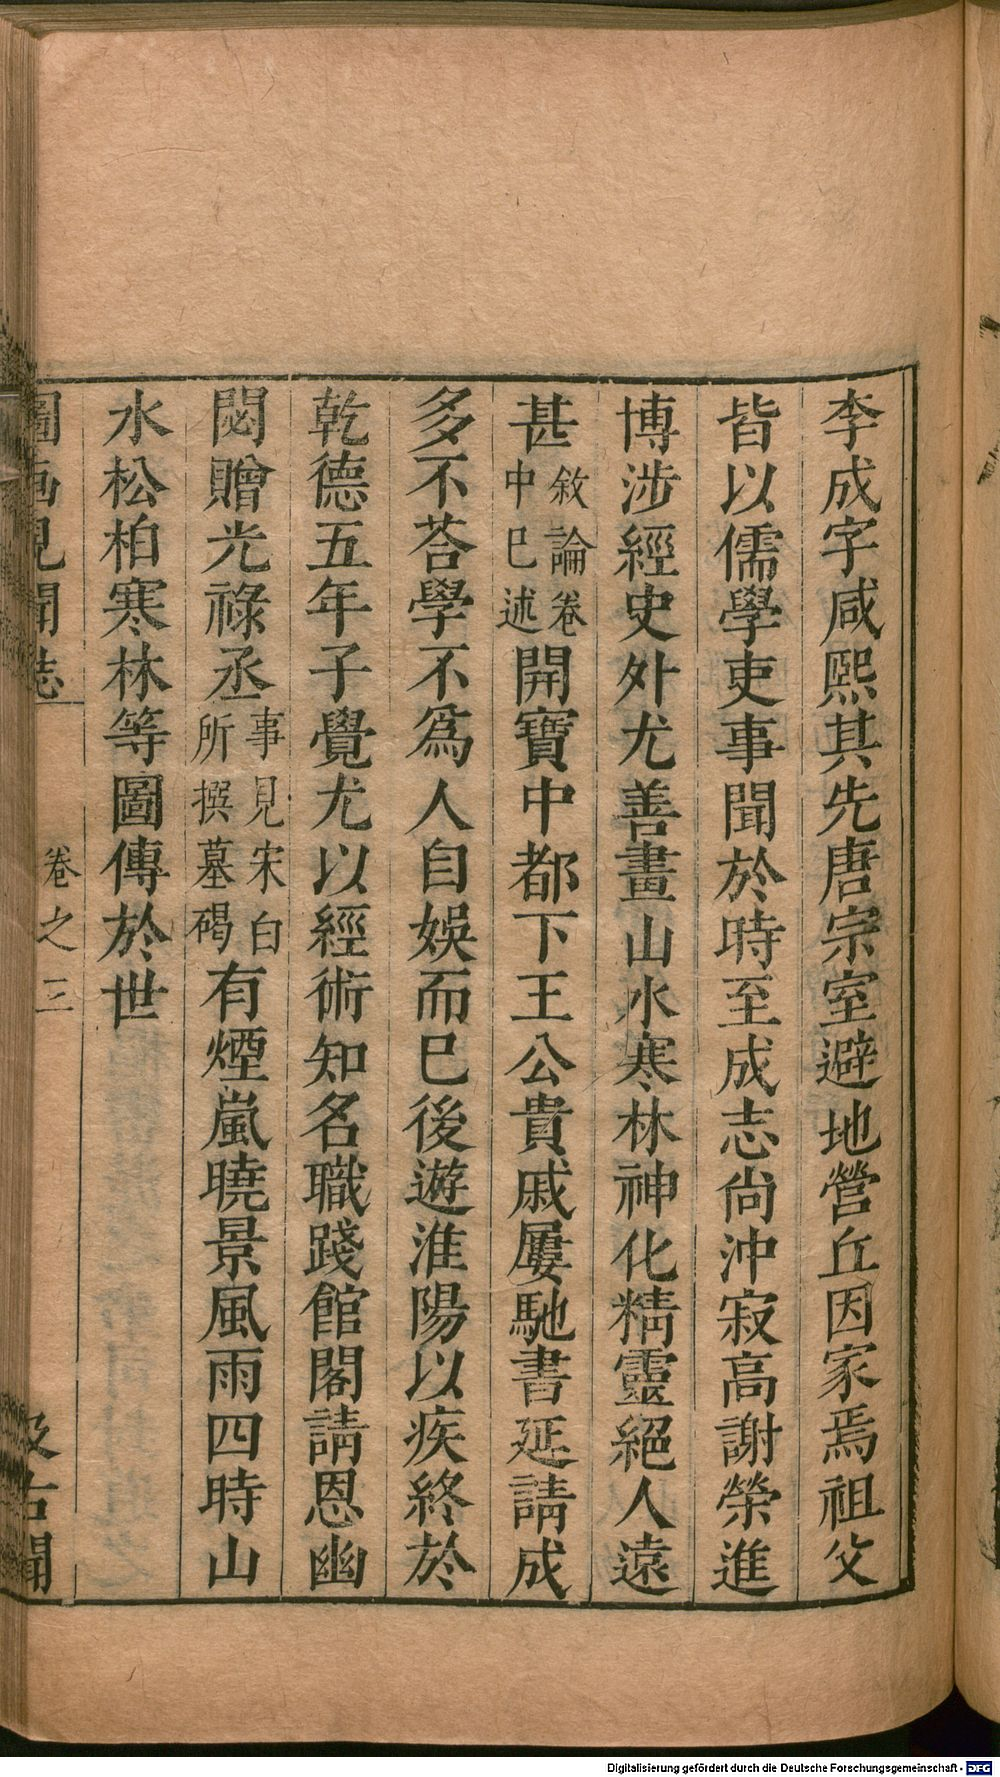 李成字咸熙其先唐宗室避地營丘因家焉祖父
皆以儒學吏事聞於時至成志尚沖寂高謝榮進
博涉經史外尤善畫山水寒林神化精靈絕人遠
甚敘論卷中巳述開寶中都下王公貴戚屢馳書延請成
多不荅學不爲人自娛而巳後遊淮陽以疾終於
乾德五年子覺尤以經術知名職踐館閣請恩幽
閟贈光祿丞事見宋白所撰墓碣有煙嵐曉景風雨四時山
水松柏寒林等圖傳於世
圖画見聞誌 卷之三 汲古閣
Digitalisierung gefördert durch die Deutsche Forschungsgemeinschaft - DFG